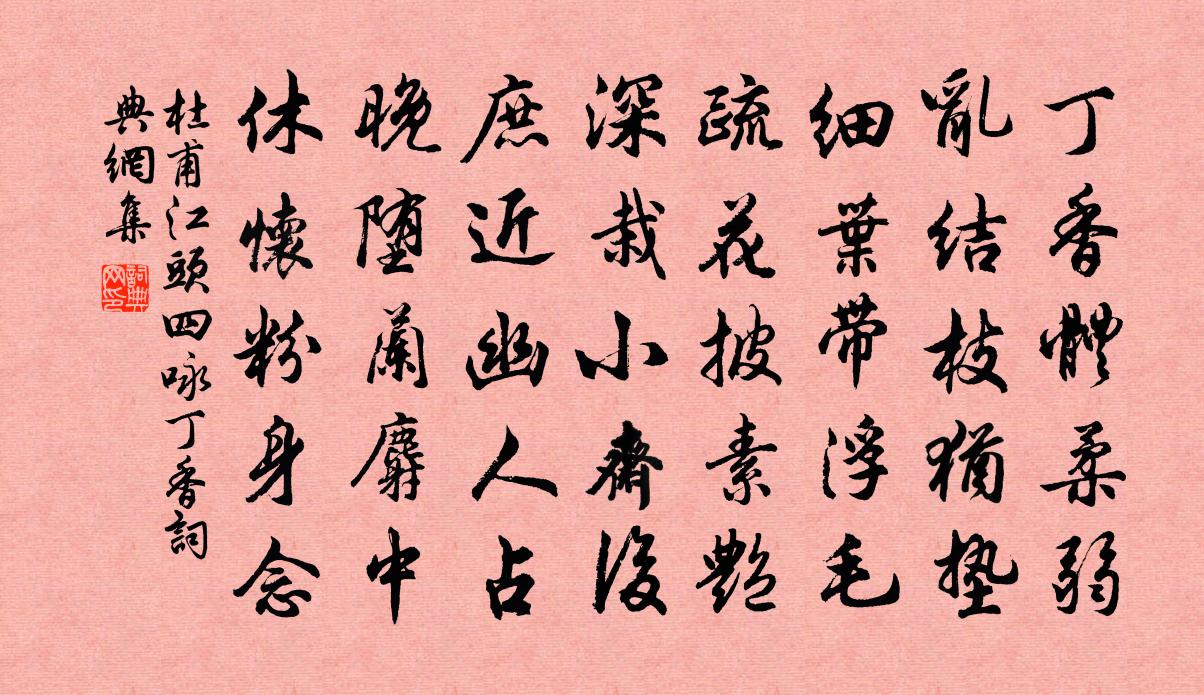 丁香體柔弱
亂結枝猶墊
細葉帶浮毛
疏花披素艷
深栽小齋後
庶近幽人占
晚堕蘭麝中
休懷粉身念
杜甫江頭四咏丁香詞
典網集
詞典
网印